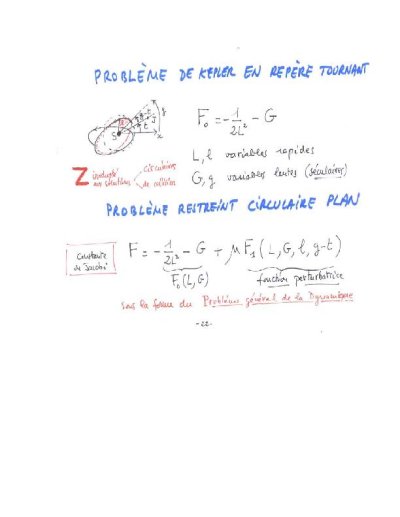 PROBLÈME DE KEPLER EN REPÈRE TOURNANT
F₀ = -1/2L² - G
L, l variables rapides
G, g variables lentes (séculaires)
Z
circulaires
PROBLÈME RESTREINT CIRCULAIRE PLAN
Constante de Jacobi
F = -1/2L² - G + μF₁(L, G, l, g-t)
F₀(L, G)
fonction perturbatrice
sous la forme du Problème général de la Dynamique
-22-